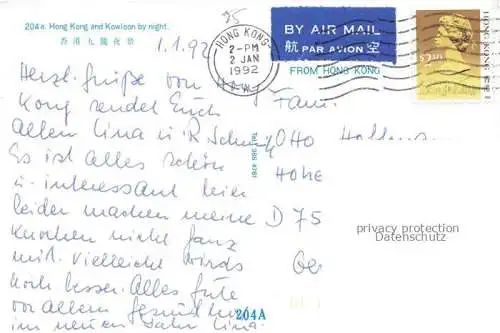 204 a. Hong Kong and Kowloon by night.
香港九龍夜景
1.1.92
Herzl. Grüße von Hong
Kong sendet Euch
allen Lina u. R.
Es ist alles schön
u. interessant hier
leider machen meine
Knochen nicht ganz
mit. Vielleicht wirds
noch besser. Alles Gute
vor allem Gesundheit
im neuen Jahr Lina
25
HONG KONG
2-PM
2 JAN
1992
BY AIR MAIL
航 PAR AVION 空
FROM HONG KONG
HONG KONG
$2.30
Fam.
OHO
HOHE
D 75
privacy protection
Datenschutz
204A